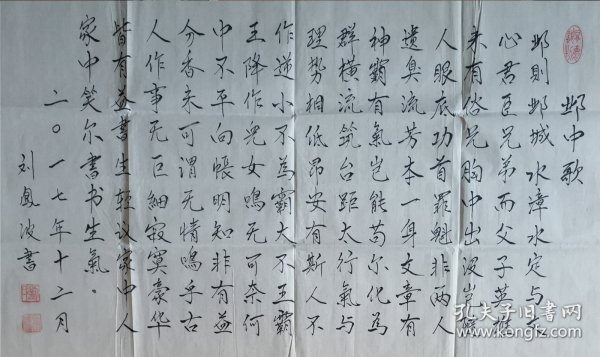 邺中歌
邺则邺城水漳水定与
心君臣兄弟而父子英雄
来有俗兄胸中出没岂随
人眼底功首罪魁非两人
遗臭流芳本一身文章有
神霸有氣岂能苟尔化为
群横流筑台距太行氣与
理势相低昂安有斯人不
作逆小不为霸大不王霸
王降作児女鳴无可奈何
中不平向帳明知非有益
分香未可谓无情鳴乎古
人作事无巨細寂寞豪华
皆有益书生轻议冢中人
冢中笑尔書书生氣。
二〇一七年十二月
刘鳳波書
孔夫子旧書网